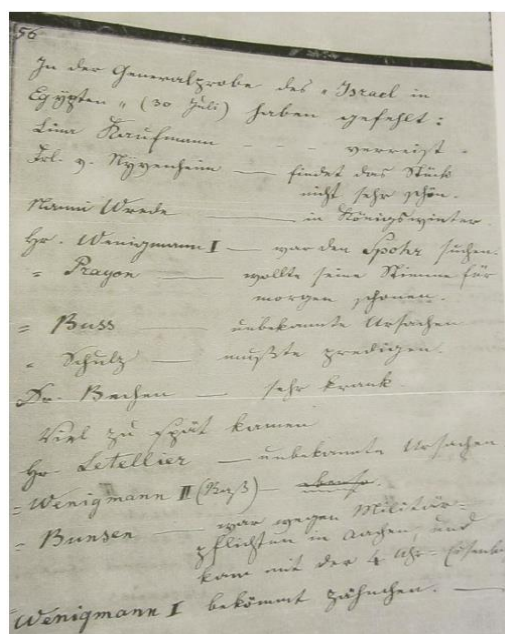 56
In der Generalprobe des „Israel in
Egypten" (30 Juli) haben gefehlt:
Lina Kaufmann - - - verreist.
Frl. v. Nyvenheim — findet das Stück
nicht sehr schön.
Nanni Wrede — in Königswinter.
Hr. Wenigmann I — war den Spohr suchen.
" Prayon — wollte seine Stimme für
morgen schonen.
= Buss unbekannte Ursachen
" Schulz — mußte predigen.
Dr. Bechen — sehr krank
Viel zu spät kamen
Hr. Letellier — unbekannte Ursachen
= Wenigmann II (Baß) —
= Bunsen — war wegen Militär=
pflichten in Aachen, und
kam mit der 4 Uhr-Eisenb
Wenigmann I bekömmt Zähnchen. —